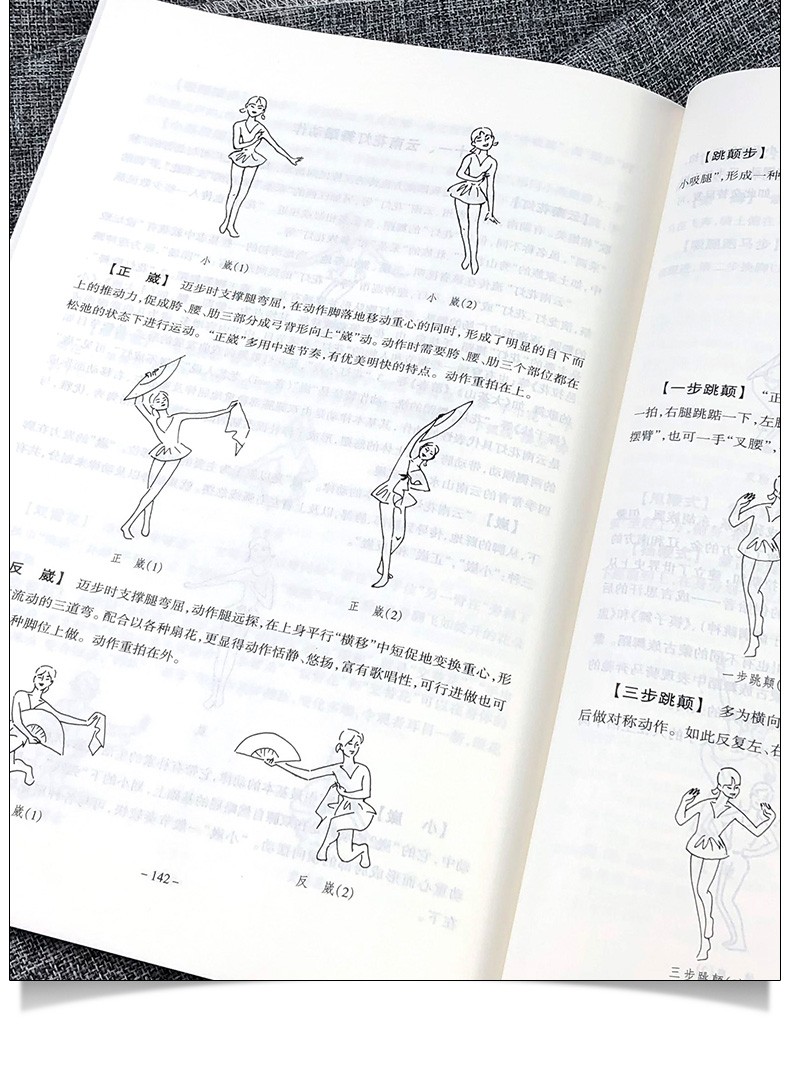 小　崴(1)
小　崴(2)
【正　崴】 迈步时支撑腿弯屈，在动作脚落地移动重心的同时，形成了明显的自下而
上的推动力，促成胯、腰、肋三部分成弓背形向上“崴”动。动作时需要胯、腰、肋三个部位都在
松弛的状态下进行运动。“正崴”多用中速节奏，有优美明快的特点。动作重拍在上。
正　崴(1)
正　崴(2)
反　崴】 迈步时支撑腿弯屈，动作腿远探，在上身平行“横移”中短促地变换重心，形
流动的三道弯。配合以各种扇花，更显得动作恬静、悠扬，富有歌唱性，可行进做也可
种脚位上做。动作重拍在外。
崴(1)
反　崴(2)
-142-
【跳颠步】
小吸腿”，形成一种
【一步跳颠】 “正
一拍，右腿跳踮一下，左
摆臂”，也可一手“叉腰”，
一步跳颠(
【三步跳颠】 多为横向
后做对称动作。如此反复左、右
三步跳颠(